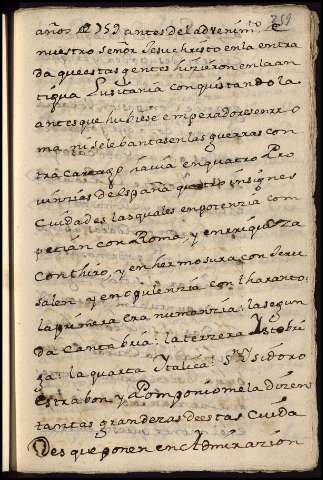 259
años D 759 antes del advenimto. de
nuestro señor Jesuchristo en la entra
da que estas gentes hizieron en la an
tigua Lusitania conquistandola
antes que hubiese emperadores en rro
ma, ni se lebantasen las guerras con
tra cartago havia en quatro Pro
vinzias de España quatro insignes
Cuidades las quales en potenzia com
petian con Roma, y en rriqueza
con thiro, y en hermosura con Jeru
salen y en opulenzia con tharanto
la primera era numanzia: la segun
da Cantabria: la terzera Istobri
ga: la quarta Ytalica: Sn. Isidoro
estrabon y Pomponio mela dizen
tantas grandezas de estas Cuida
Des que ponen en Admirazion